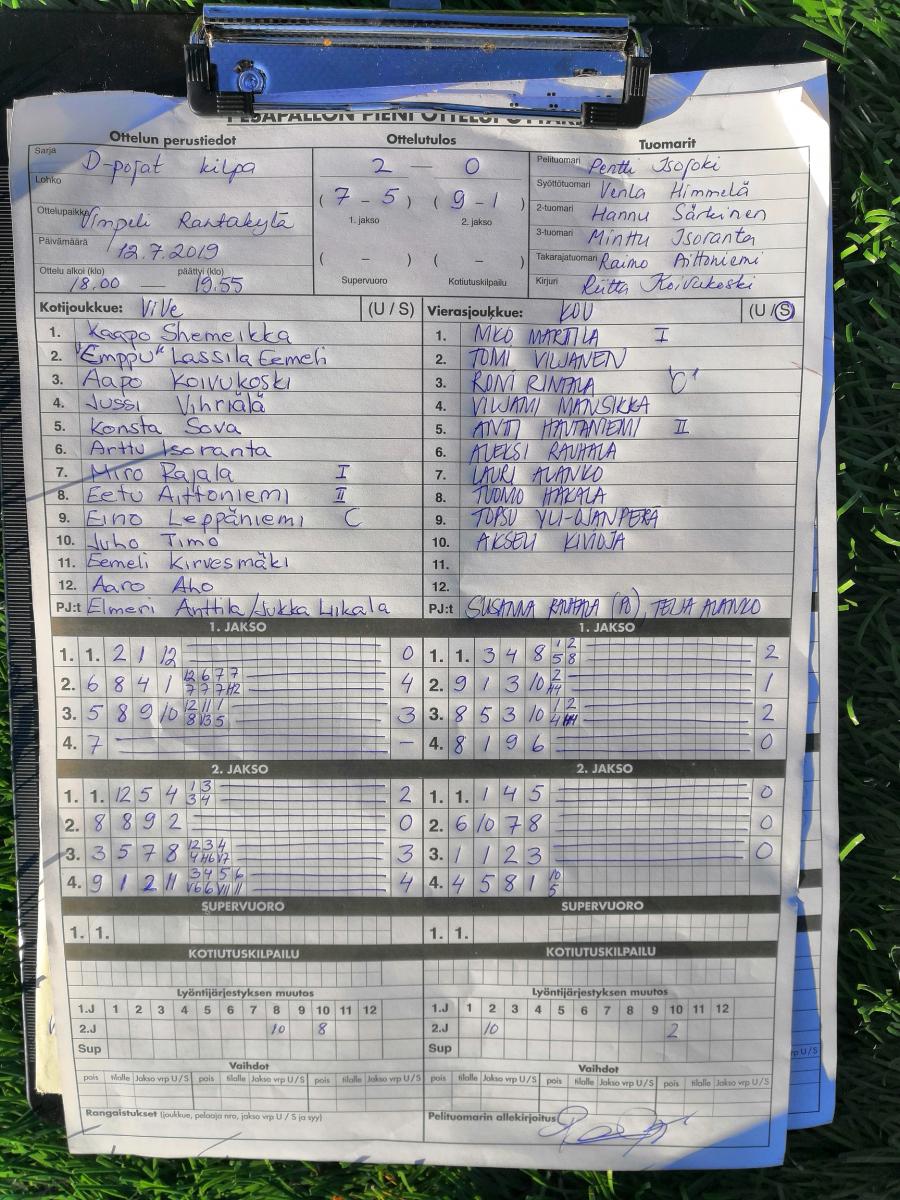 PESÄPALLON PIENI OTTELUPÖYTÄKIRJA
Ottelun perustiedot Ottelutulos Tuomarit
Sarja D-pojat kilpa
Lohko
Ottelupaikka Vimpeli Rantakylä
Päivämäärä 12.7.2019
Ottelu alkoi (klo) päättyi (klo)
18.00 — 19.55
2 — 0
(7 - 5) (9 - 1)
1. jakso 2. jakso
( - ) ( - )
Supervuoro Kotiutuskilpailu
Pelituomari Pentti Isojoki
Syöttötuomari Venla Himmelä
2-tuomari Hannu Särkinen
3-tuomari Minttu Isoranta
Takarajatuomari Raimo Aittoniemi
Kirjuri Riitta Koivukoski
Kotijoukkue: ViVe (U / S)
1. Kaapo Shemeikka
2. "Emppu" Lassila Eemeli
3. Aapo Koivukoski
4. Jussi Vihriälä
5. Konsta Sova
6. Arttu Isoranta
7. Miro Rajala I
8. Eetu Aittoniemi II
9. Eino Leppäniemi C
10. Juho Timo
11. Eemeli Kirvesmäki
12. Aaro Aho
PJ:t Elmeri Anttila/Jukka Liikala
Vierasjoukkue: KOU (U / S)
1. MARTTILA I
2. TOMI VILJANEN
3. RONI RINTALA 'C'
4. VILJAMI MANSIKKA
5. ANTTI HAUTANIEMI II
6. ALEKSI RAUHALA
7. LAURI ALANKO
8. TUOMO HAKALA
9. TOPSU YLI-OJANPERÄ
10. AKSELI KIVIOJA
11.
12.
PJ:t SUSANNA RAUHALA TEIJA ALANKO
1. JAKSO
1. 1. 2 1 12 0
2. 6 8 4 1 4
3. 5 8 9 10 3
4. 7 -
1. JAKSO
1. 1. 3 4 8 1 2 5 8 2
2. 9 1 3 10 1
3. 8 5 3 10 2
4. 8 1 9 6 0
2. JAKSO
1. 1. 12 5 4 1 3 3 4 2
2. 8 8 9 2 0
3. 3 5 7 8 3
4. 9 1 2 11 4
2. JAKSO
1. 1. 1 4 5 0
2. 6 10 7 8 0
3. 1 1 2 3 0
4. 4 5 8 1 10 5
SUPERVUORO SUPERVUORO
1. 1. 1. 1.
KOTIUTUSKILPAILU KOTIUTUSKILPAILU
Lyöntijärjestyksen muutos
1.J 1 2 3 4 5 6 7 8 9 10 11 12
2.J 10 8
Sup
Lyöntijärjestyksen muutos
1.J 1 2 3 4 5 6 7 8 9 10 11 12
2.J 10 2
Sup
Vaihdot
pois tilalle Jakso vrp U / S pois tilalle Jakso vrp U / S pois tilalle Jakso vrp U / S
Vaihdot
pois tilalle Jakso vrp U / S pois tilalle Jakso vrp U / S pois tilalle Jakso vrp U / S
Rangaistukset (joukkue, pelaaja nro, jakso vrp U / S ja syy)
Pelituomarin allekirjoitus